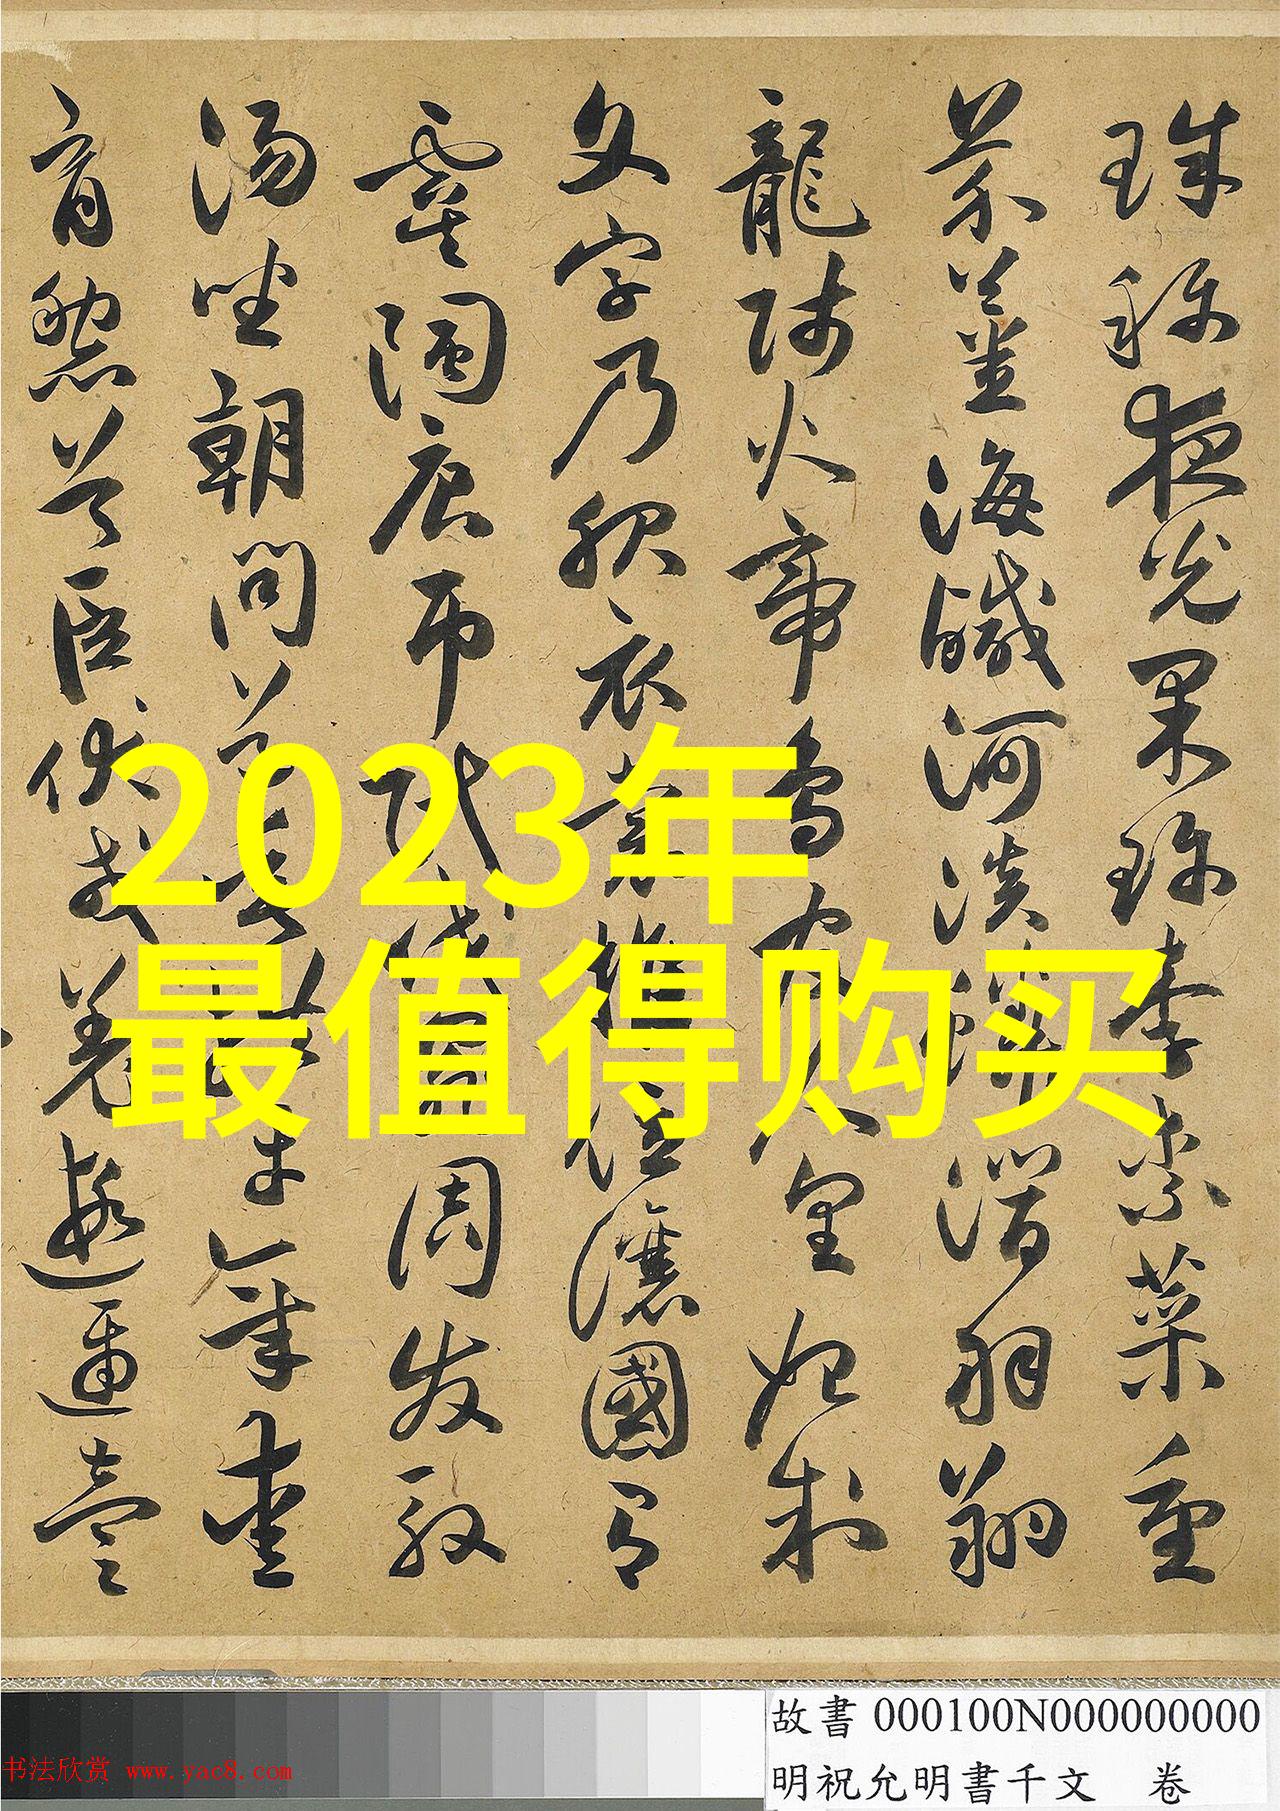 珠稱夜光果珍李柰菜重
芥薑海鹹河淡鱗潛羽翔
龍師火帝鳥官人皇始制
文字乃服衣裳推位讓國有
虞陶唐弔民伐罪周发殷
湯坐朝問道垂拱平章愛
育黎首臣伏戎羌遐邇壹
2023年
最值得购买
故書 000100N000000000
明祝允明書千文 卷
书法欣赏 www.yac8.com